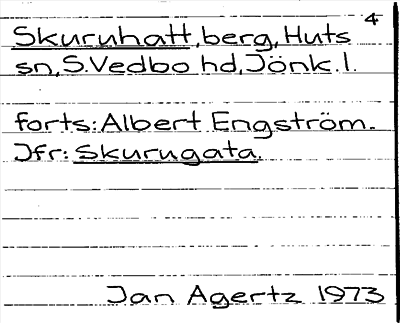 4
Skuruhatt, berg, Huts
sn, S. Vedbo hd, Jönk. l.
forts: Albert Engström.
Jfr: Skurugata.
Jan Agertz 1973